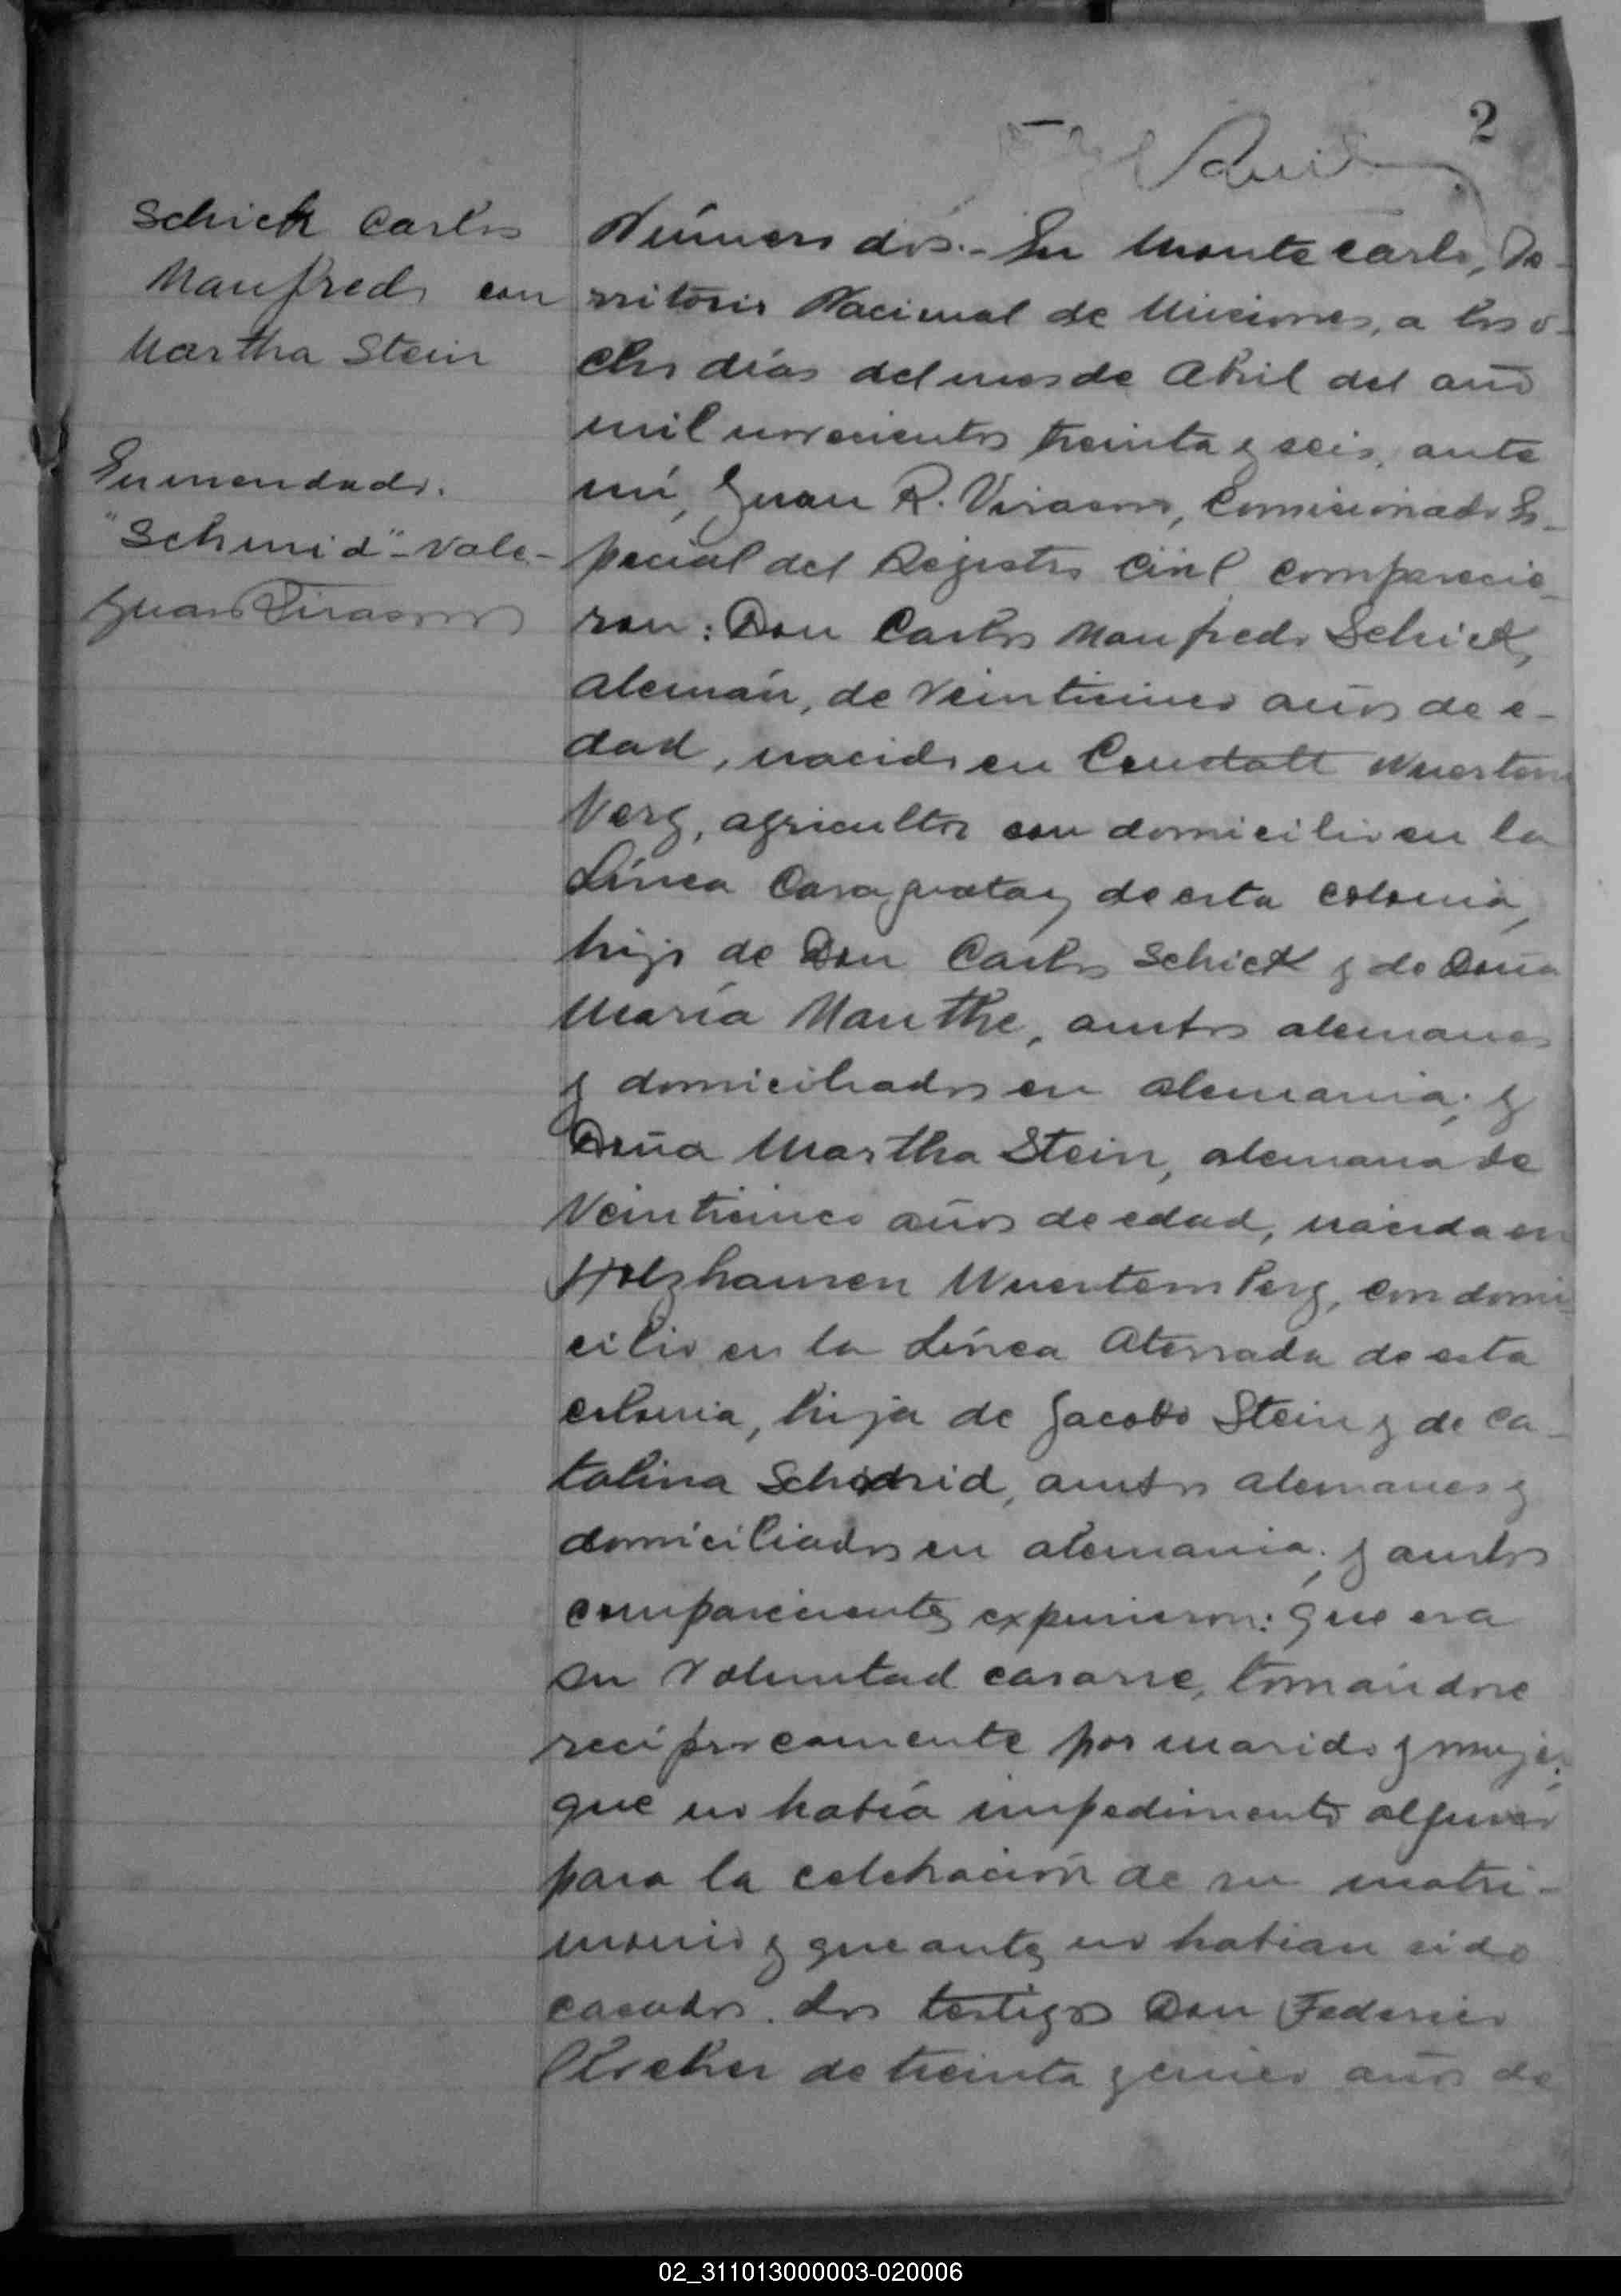 2
Schick Carlos
Manfredo con
Martha Stein
Enmendado.
"Schmid"-Vale-
Juan R Virasoro
Número dos.- En Montecarlo, Te-
rritorio Nacional de Misiones, a los o-
cho días del mes de Abril del año
mil novecientos treinta y seis, ante
mí, Juan R. Virasoro, Comisionado Es-
pecial del Registro Civil comparecie-
ron: Don Carlos Manfredo Schick,
alemán, de veinticinco años de e-
dad, nacido en Canstatt Wuertem
berg, agricultor con domicilio en la
Línea Caraguatay de esta colonia,
hijo de Don Carlos Schick y de Doña
María Manthe, ambos alemanes
y domiciliados en Alemania; y
Doña Martha Stein, alemana de
veinticinco años de edad, nacida en
Holzhausen Wuertemberg, con domi-
cilio en la Línea Aterrada de esta
colonia, hija de Jacobo Stein y de Ca-
talina Schmid, ambos alemanes y
domiciliados en Alemania; y ambos
comparecientes expusieron: que era
su voluntad casarse, tomándose
recíprocamente por marido y mujer;
que no había impedimento alguno
para la celebración de su matri-
monio y que antes no habían sido
casados. Los testigos Don Federico
de treinta y cinco años de
02_311013000003-020006